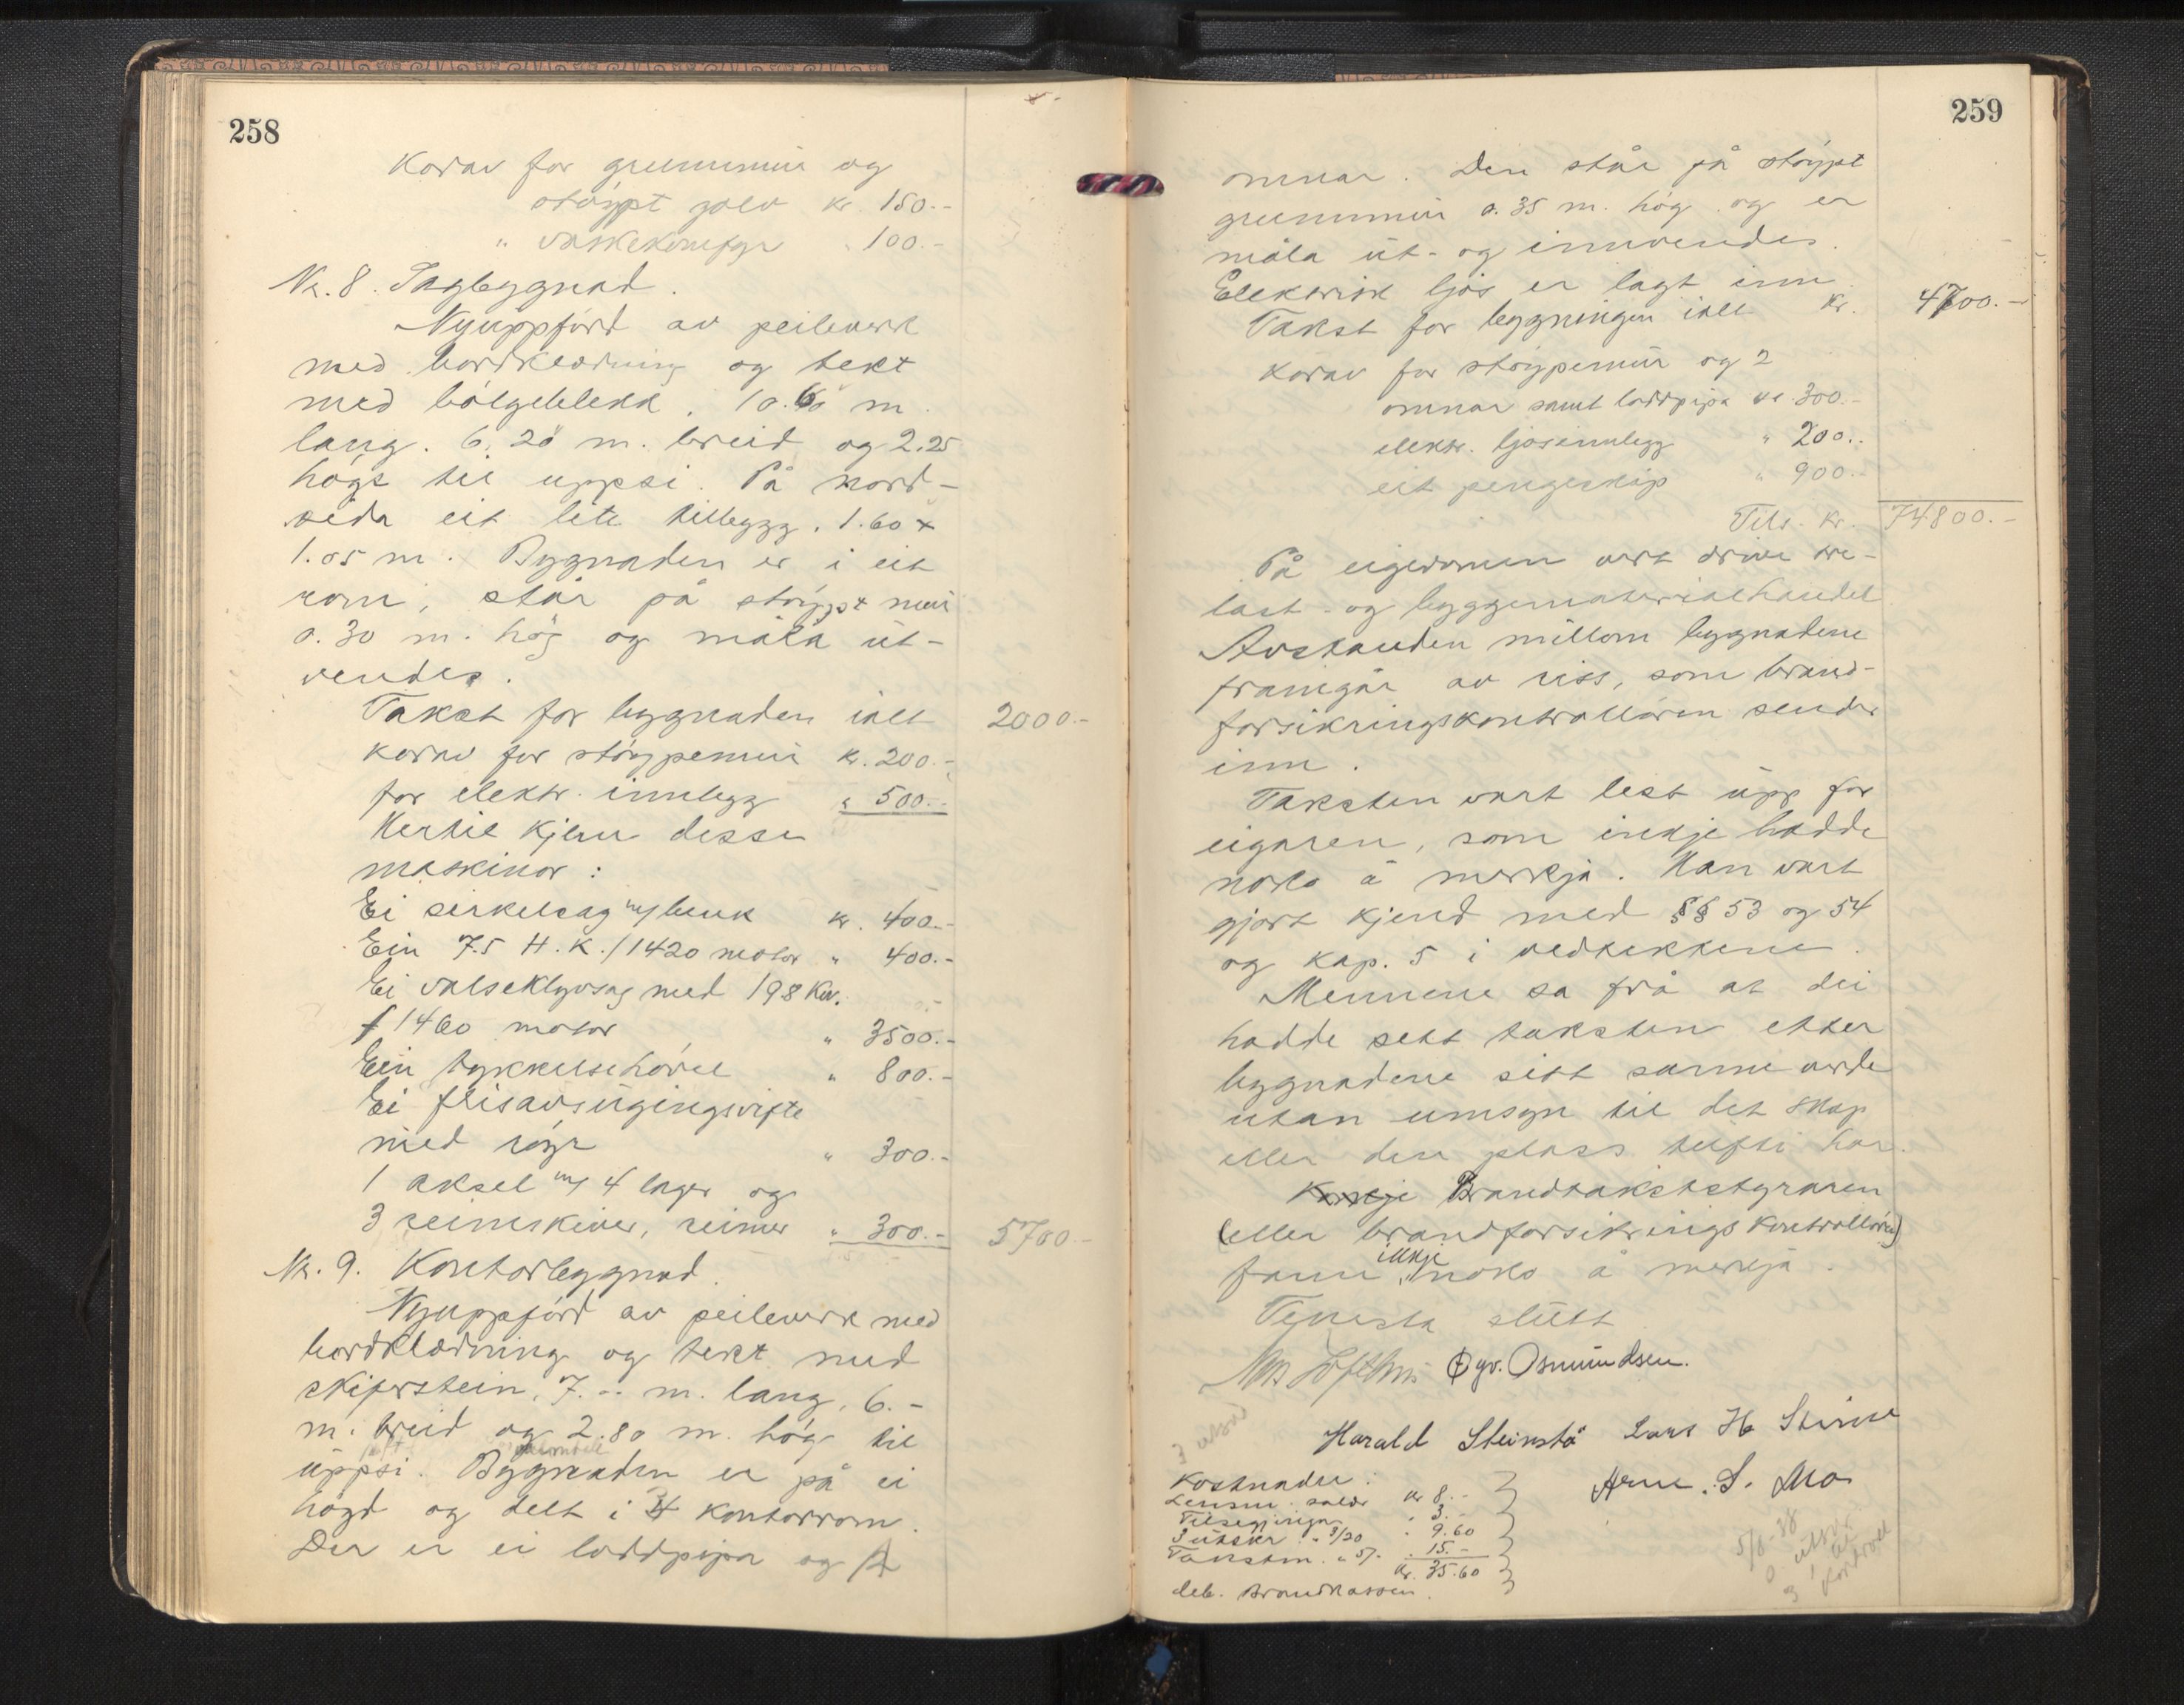 258
Korav for grunnmur og
støypt golv kr. 150.-
" vaskekomfyr " 100.-
Nr. 8. Sagbygnad.
Nyuppførd av peileverk
med bordklædning og tekt
med bølgeblekk. 10.60 m.
lang. 6.20 m. breid og 2.25
høgt til uppsi. På nord-
sida eit lite tilbygg. 1.60 x
1.05 m. Bygnaden er i eit
rom, står på støypt mur
0.30 m. høg og måla ut-
vendes.
Takst for bygnaden ialt 2000.-
korav for støypemur kr. 200.-
for elektr. innlegg " 500.-
Hertil kjem desse
maskinor:
Ei sirkelsag m/ benk kr. 400.-
Ein 7.5 H.K./1420 motor " 400.-
Ei valseklyvsag med 198 Kw.
/1460 motor " 3500.-
Ein tykkelsehøvel " 800.-
Ei flisavsugingsvifte
med røyr " 300.-
1 aksel m/ 4 lager og
3 reimskiver, reimer " 300.- 5700.-
Nr. 9. Kontorbygnad.
Nyuppførd av peileverk med
bordklædning og tekt med
skiferstein, 7.-- m. lang, 6.-
m. breid og 2.80 m. høg til
uppsi. Bygnaden er på ei
høgd og delt i 3 kontorrom.
Der er ei loddpipa og 2
259
omnar. Den står på støypt
grunnmur 0.35 m. høg og er
måla ut- og innvendes.
Elektrisk ljos er lagt inn.
Takst for bygningen ialt kr. 4700.-
Korav for støypemur og 2
omnar samt loddpipa kr. 300.-
elektr. ljosinnlegg " 200.-
eit pengeskåp " 900.-
Tils. kr. 74800.-
På eigedomen vert drive tre-
last- og byggematerialhandel
Avstanden millom bygnadene
framgår av riss, som brand-
forsikringskontrolløren sender
inn.
Taksten vart lest upp for
eigaren, som inkje hadde
noko å merkja. Han vart
gjort kjend med §§ 53 og 54
og kap. 5 i vedtektene.
Mennene sa frå at dei
hadde sett taksten etter
bygnadene sitt sanne verde
utan umsyn til det skap
eller den plass tufti har.
Korkje Brandtakststyraren
(eller brandforsikringskontrolløren)
fann ikkje noko å merkja.
Tenesta slutt
Øyv. Osmundsen.
Harald Steinstø Lars H Steine
Arne. S. Mo
3 utskr
Kostnader:
Lensm. salær kr 8.-
Tilsegjingar " 3.-
3 utskr. " 3/20 " 9.60
Takstm. " 5/- " 15.-
kr. 35.60
deb. Brandkassen.
5/8-38